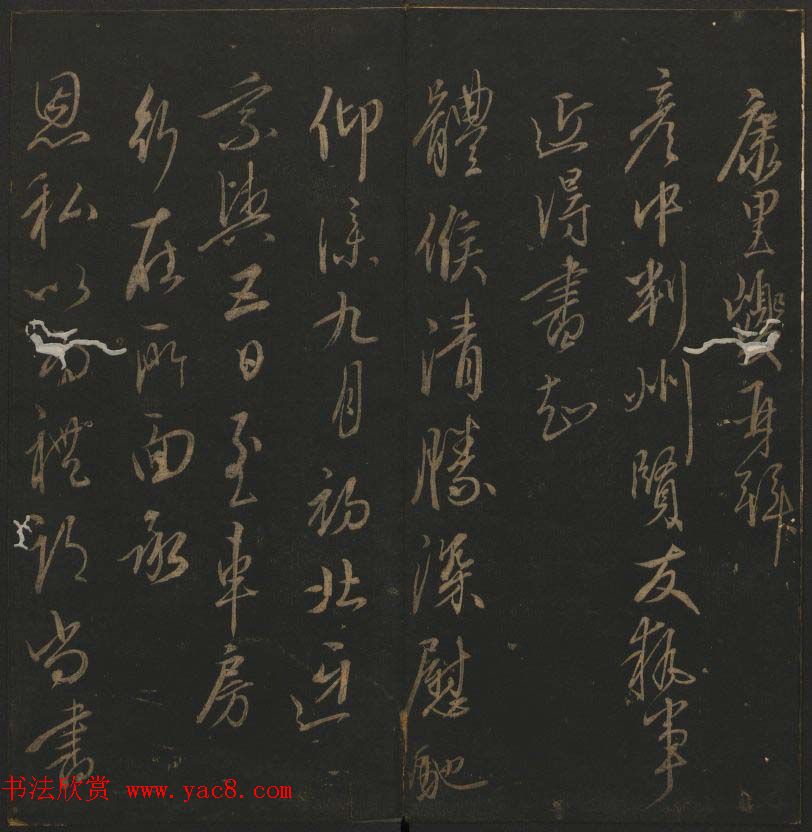 康里巎巎再拜
彦中判州賢友執事
近得書知
體候清勝深慰馳
仰深九月初北迎
鑾輿五日至車房
行在所面承
恩私以為禮部尚書
书法欣赏 www.yac8.com